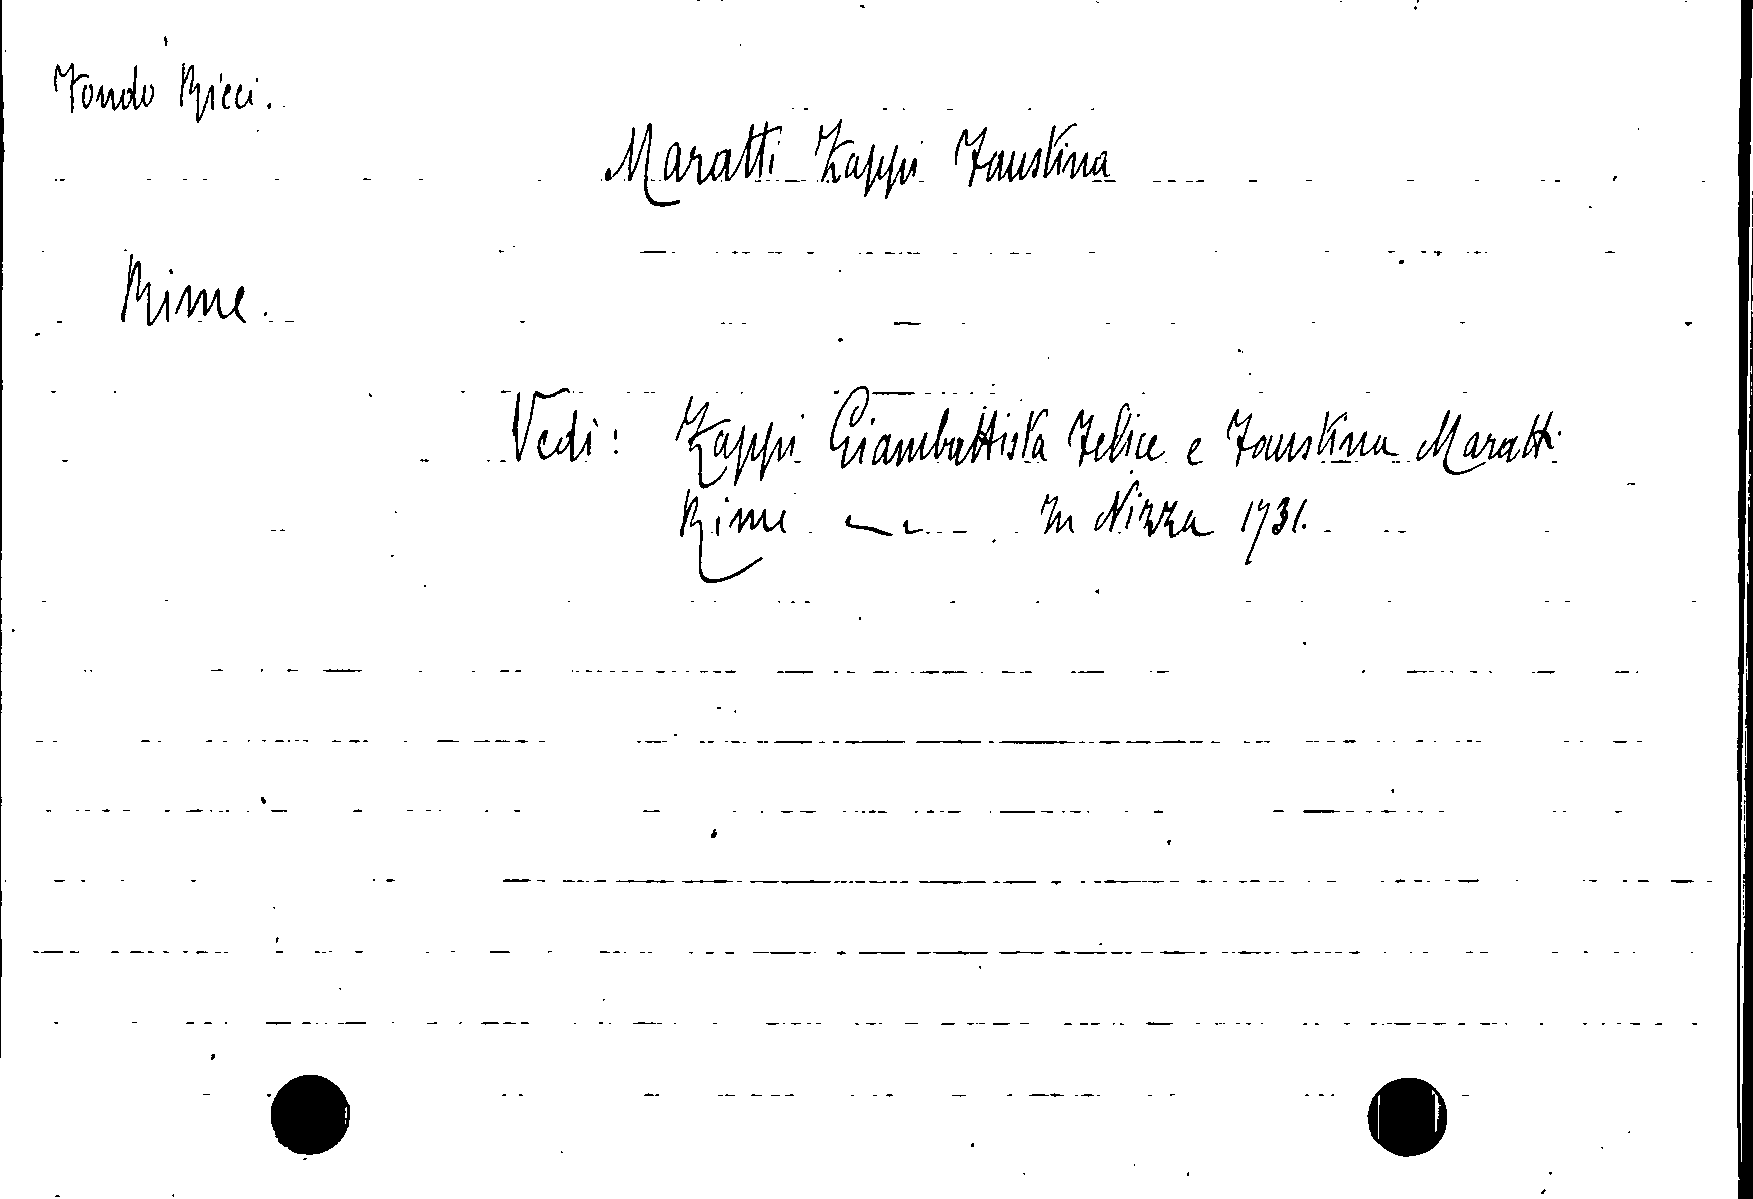 Fondo Ricci.
Maratti Zappi Faustina
Rime.
Vedi: Zappi Giambattista Felice e Faustina Maratti
Rime — — In Nizza 1731.